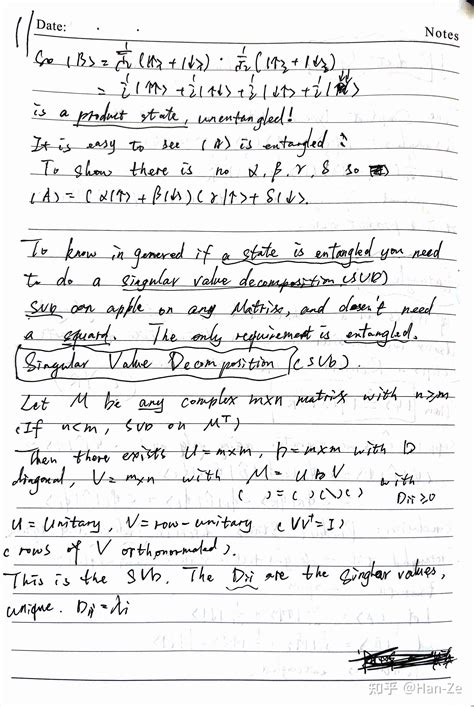 11
Date:
Notes
So |B> = 1/√2 (|↑> + |↓>) · 1/√2 (|↑> + |↓>)
= ½|↑↑> + ½|↑↓> + ½|↓↑> + ½|↓↓>
is a product state, unentangled!
It is easy to see |A> is entangled:
To show there is no α, β, γ, δ so
|A> = (α|↑> + β|↓>)(γ|↑> + δ|↓>.
To know in general if a state is entangled you need
to do a singular value decomposition (SVD)
SVD can apple on any Matrix, and doesn't need
a squard. The only requirement is entangled.
Singular Value Decomposition (SVD).
Let M be any complex m×n matrix with n≥m
(If n<m, SVD on Mᵀ)
Then there exists U = m×m, D = m×m with D
diagonal, V = m×n with M = U D V
( ) = ( )( \ )( ) with Dii ≥ 0
U = Unitary, V = row-unitary (VV† = I)
(rows of V orthonormaled).
This is the SVD. The Dii are the Singular values,
unique. Dii = λi
知乎 @Han-Ze